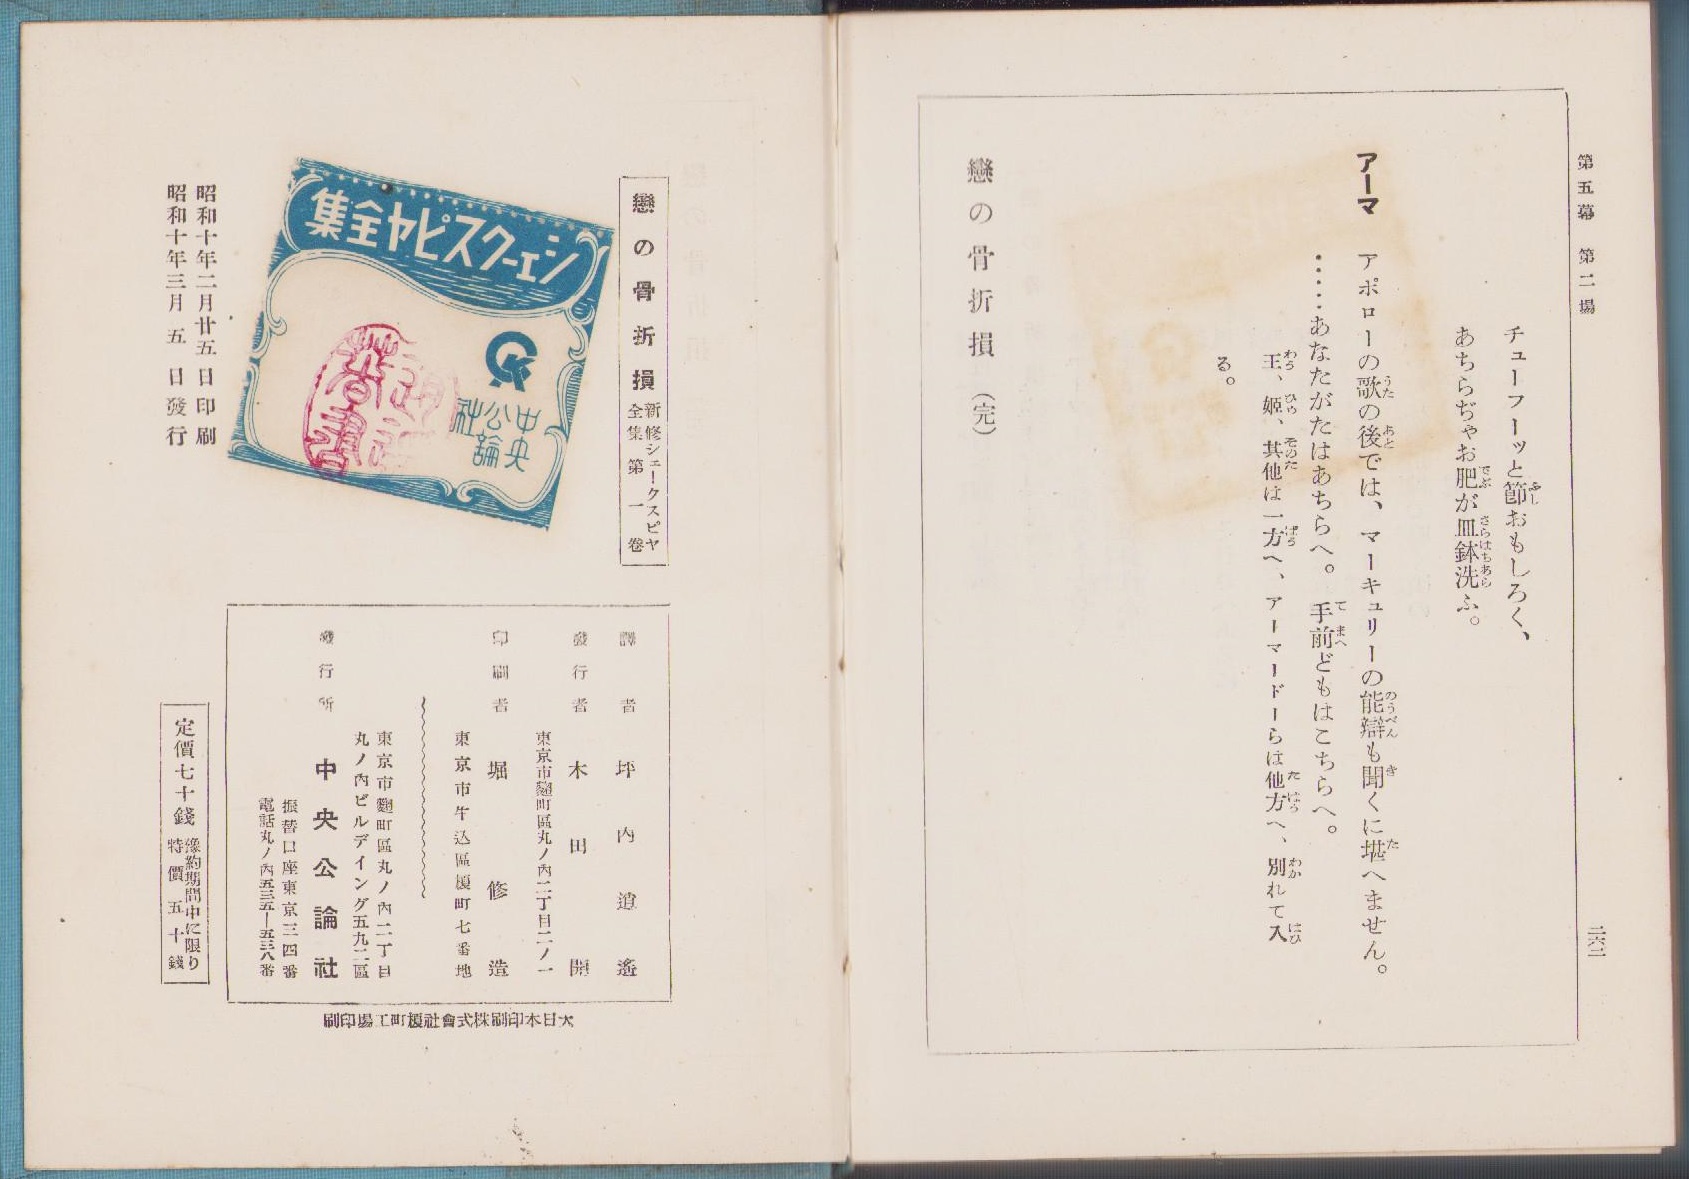 第五幕　第二場
チューフーッと節おもしろく、
あちらぢゃお肥が皿鉢洗ふ。
アーマ　アポローの歌の後では、マーキュリーの能辯も聞くに堪へません。
……あなたがたはあちらへ。手前どもはこちらへ。
王、姫、其他は一方へ、アーマードーらは他方へ、別れて入
る。
戀の骨折損（完）
二六二
戀の骨折損
新修シェークスピヤ
全集第一卷
シェークスピヤ全集
中央
公論
社
昭和十年二月廿五日印刷
昭和十年三月五日發行
譯者　坪内逍遙
發行者　木田開
東京市麴町區丸ノ内二丁目二ノ一
印刷者　堀修造
東京市牛込區榎町七番地
東京市麴町區丸ノ内二丁目
丸ノ内ビルデイング五九二區
發行所　中央公論社
振替口座東京三四番
電話丸ノ内五三五―五三八番
定價七十錢
豫約期間中に限り
特價五十錢
大日本印刷株式會社榎町工場印刷